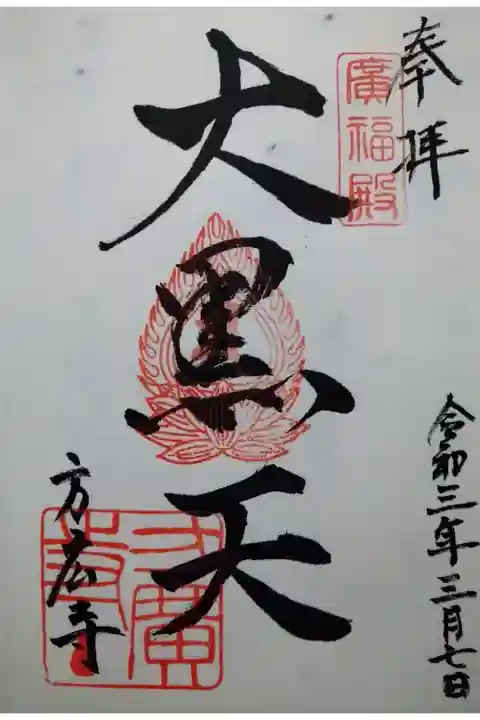 奉拝
廣福殿
令和三年三月七日
大黒天
方広寺
方廣寺